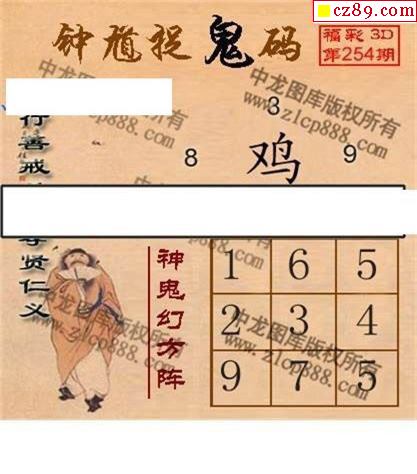 cz89.com
钟馗捉鬼码
福彩 3D
第254期
3
8 鸡 9
行善戒
尊贤仁义
神鬼幻方阵
1 6 5
2 3 4
9 7 5
中龙图库版权所有
www.zlcp888.com
中龙图库版权所有
www.zlcp888.com
中龙图库版权所有
www.zlcp888.com